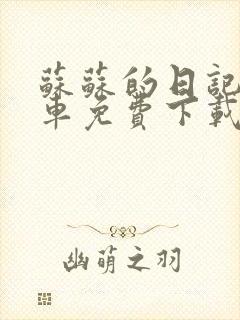 蘇蘇的日記
車免費下載
幽萌之羽